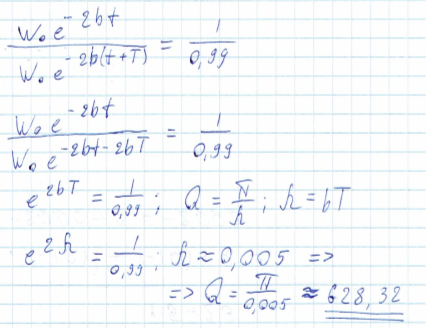 W₀e^{-2bt} / W₀e^{-2b(t+T)} = 1/0,99
W₀e^{-2bt} / W₀e^{-2bt-2bT} = 1/0,99
e^{2bT} = 1/0,99; Q = π/h; h = bT
e^{2h} = 1/0,99; h ≈ 0,005 =>
=> Q = π/0,005 ≈ 628,32